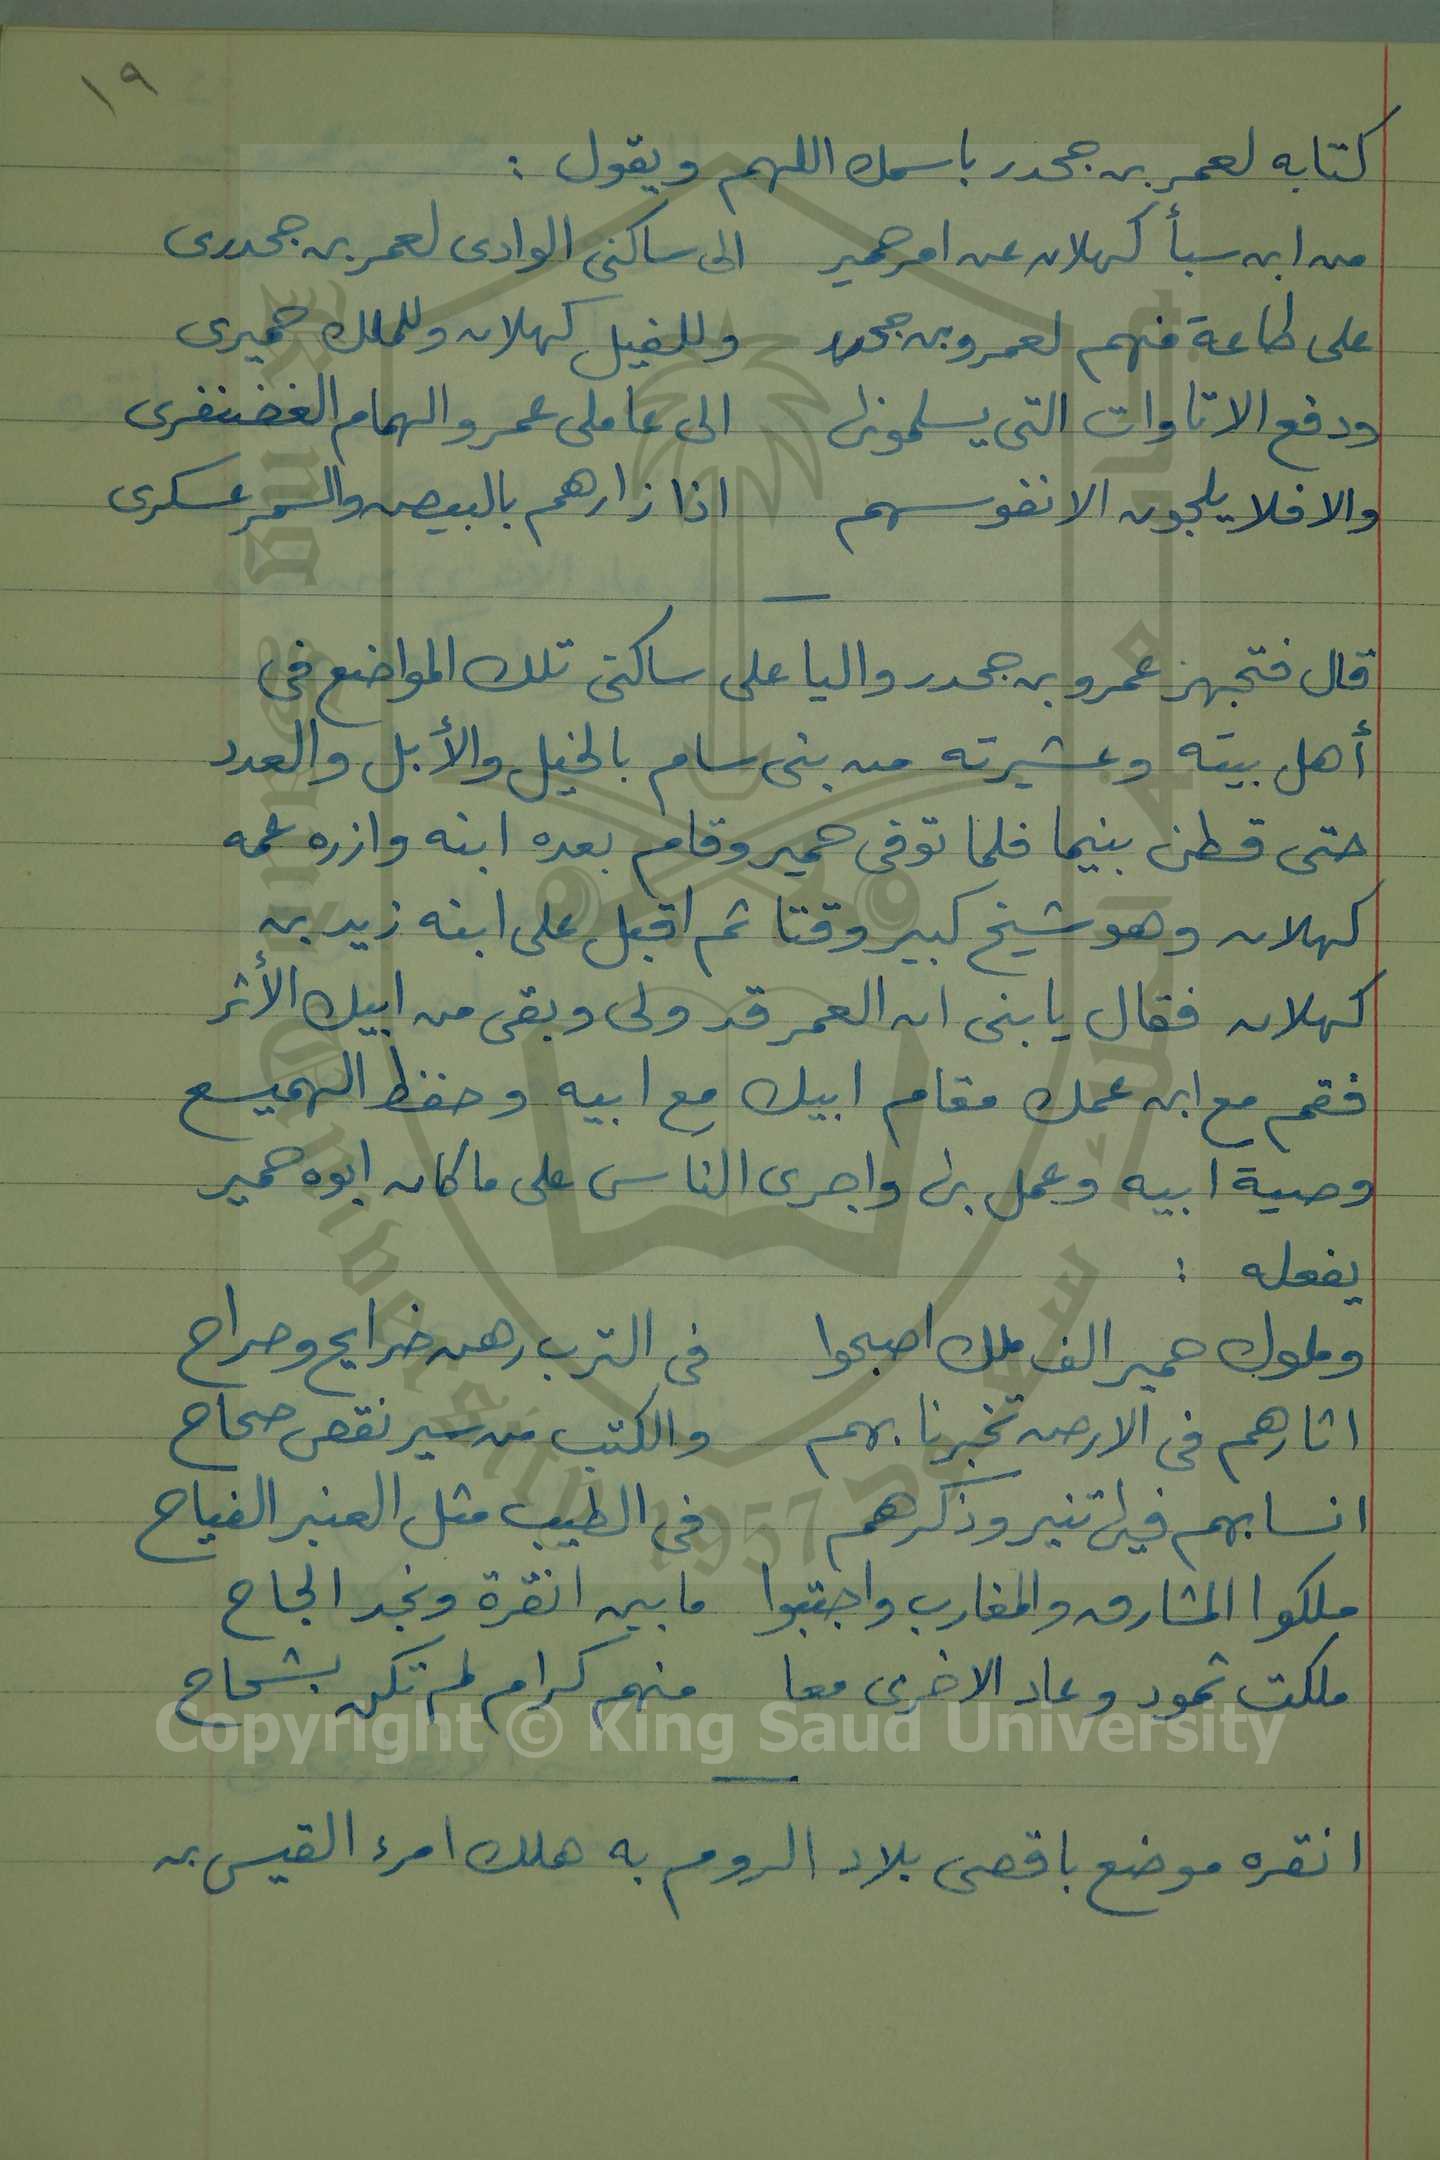 ١٩
كتابه لعمر بن جحدر باسمك اللهم ويقول :
من ابن سبأ كهلان عن امر حمير الى ساكنى الوادى لعمر بن جحدرى
على طاعة منهم لعمرو بن جحدر وللفيل كهلان وللملك حميرى
ودفع الاتاوات التى يسلمونها الى عاملى عمرو الهمام الغضنفرى
والا فلا يلجون الا نفوسهم اذا زارهم بالبيض والسمر عسكرى
قال فتجهز عمرو بن جحدر واليا على ساكنى تلك المواضع فى
أهل بيته وعشيرته من بنى سام بالخيل والأبل والعدد
حتى قطن بنيما فلما توفى حمير وقام بعده ابنه وازره عمه
كهلان وهو شيخ كبير وقتا ثم اقبل على ابنه زيد بن
كهلان فقال يا بنى ان العمر قد ولى وبقى من ابيك الأثر
فقم مع ابن عمك مقام ابيك مع ابيه وحفظ الهميسع
وصية ابيه وعمل بها واجرى الناس على ما كان ابوه حمير
يفعله :
وملوك حمير الف ملك اصبحوا فى الترب رهن ضرايح وصراح
اثارهم فى الارض تخبرنا بهم والكتب من سير نقص صحاح
انسابهم فيها تنير وذكرهم فى الطيب مثل العنبر الفياح
ملكوا المشارق والمغارب واجتبوا ما بين انقرة ونجد الجاح
ملكت ثمود وعاد الاخرى معا منهم كرام لم تكن بشحاح
انقره موضع باقصى بلاد الروم به هلك امرء القيس بن
King Saud University
1957
Copyright © King Saud University